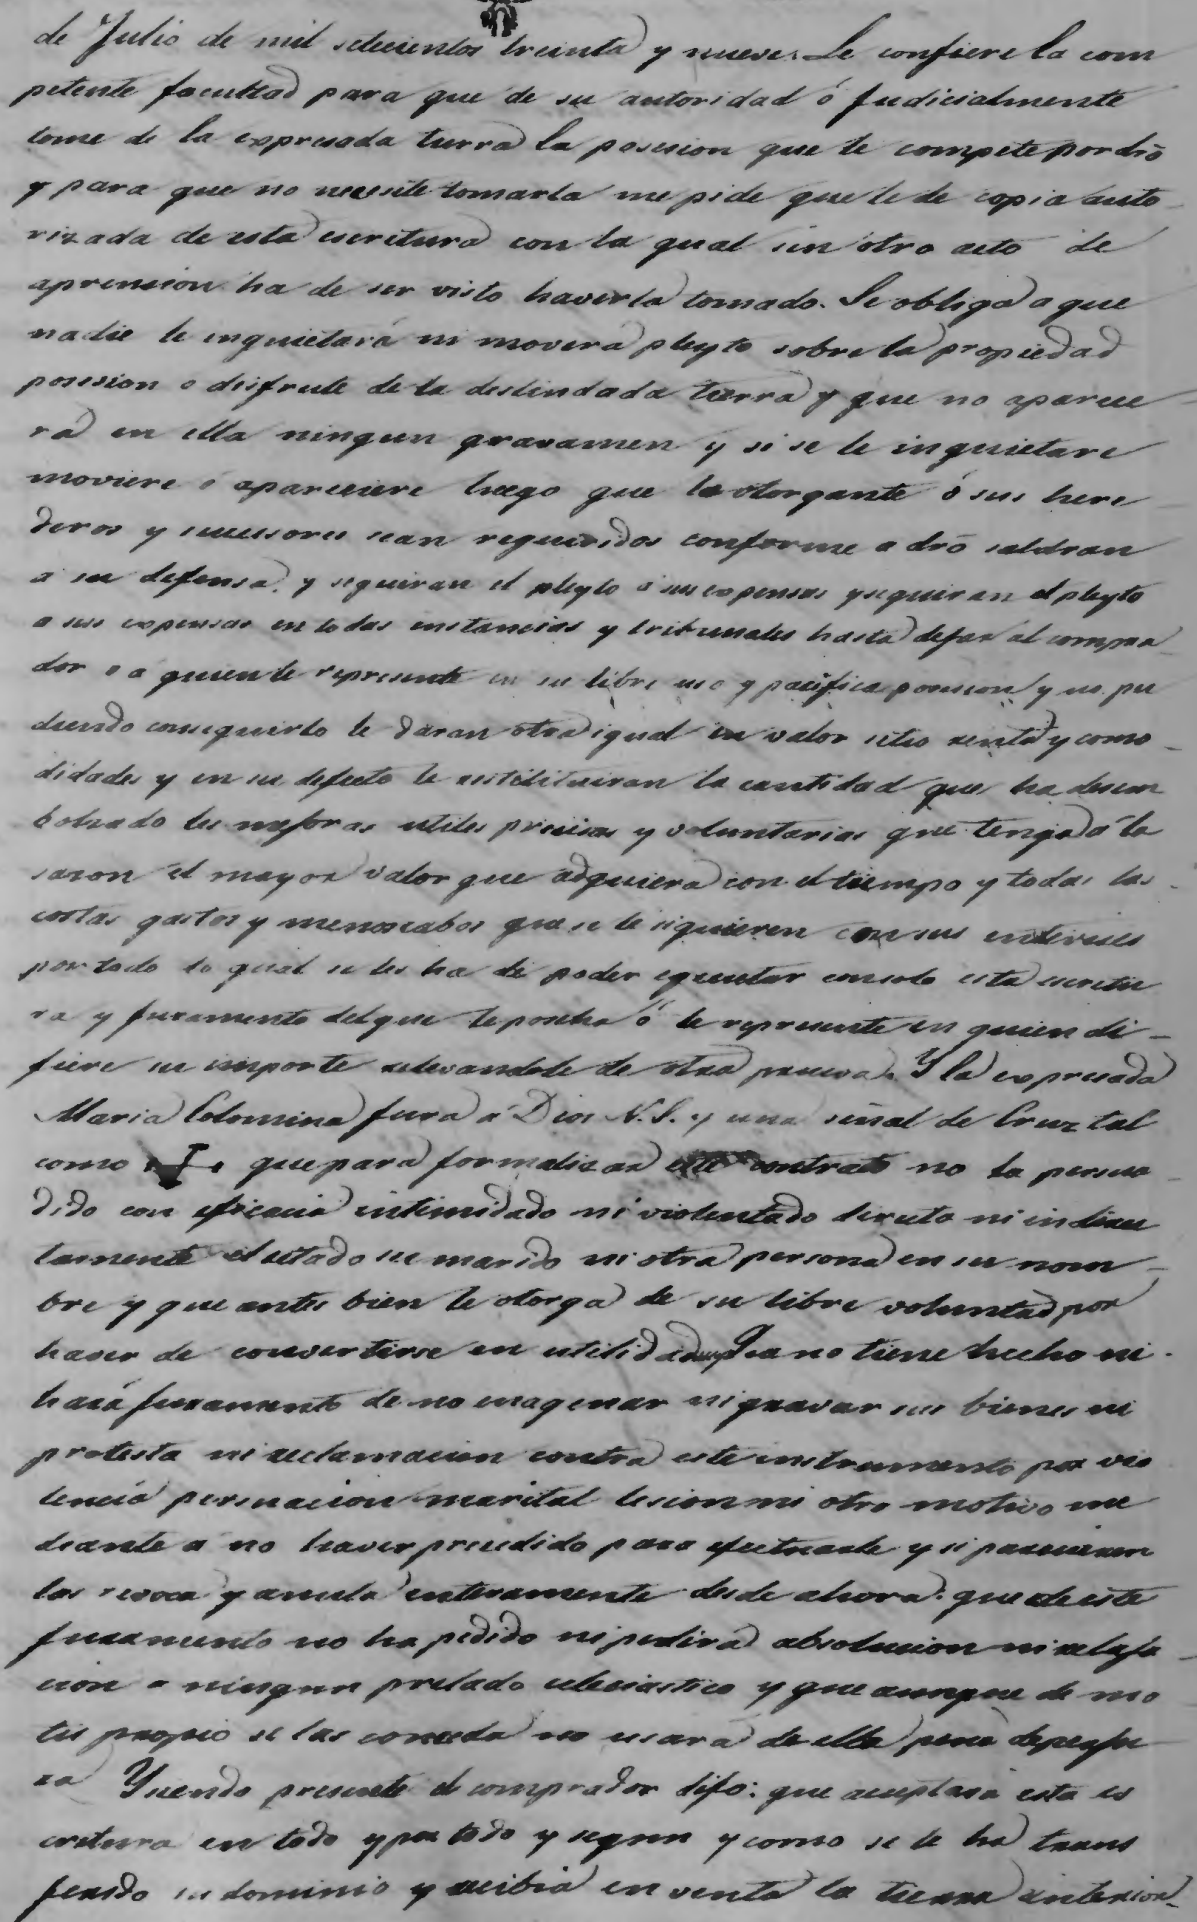 de Julio de mil setecientos treinta y nueve. Le confiere la com
petente facultad para que de su autoridad ó Judicialmente
tome de la expresada tierra la posesion que le compete por dro
y para que no necesite tomarla me pide que le de copia auto
rizada de esta escritura con la qual sin otro acto de
aprension ha de ser visto haverla tomado. Se obliga a que
nadie le inquietará ni moverá pleyto sobre la propiedad
posesion o disfrute de la deslindada tierra y que no aparece
rá en ella ningun gravamen y si se le inquietare
moviere ó apareciere luego que la otorgante ó sus here
deros y sucessores sean requeridos conforme a dro saldran
a su defensa y seguiran el pleyto á sus expensas y seguiran el pleyto
a sus expensas en todas instancias y tribunales hasta dejar al compra
dor o a quien le represente en su libre uso y pacifica posesion y no pu
diendo conseguirlo le daran otra igual en valor sitio renta y como
didades y en su defecto le restitituiran la cantidad que ha desem
bolsado las mejoras utiles precisas y voluntarias que tenga á la
sazon el mayor valor que adquiera con el tiempo y todas las
costas gastos y menoscabos que se le siguieren con sus intereses
por todo lo qual se les ha de poder egecutar con solo esta escritu
ra y juramento del que la posea ó le represente en quien di
fiere su importe relevandole de otra prueva. Y la expresada
Maria Colomina jura á Dios N. S. y una señal de Cruz tal
como que para formalizar este contrato no la persua
dido con eficacia intimidado ni violentado directa ni indirec
tamente el citado su marido ni otra persona en su nom
bre y que antes bien le otorga de su libre voluntad por
haver de convertirse en utilidad Que no tiene hecho ni
hará juramento de no enagenar ni gravar sus bienes ni
protesta ni reclamacion contra este instrumento por vio
lencia persuacion marital lesion ni otro motivo me
diante a no haver precedido para efectuarle y si parecieren
las revoca y anula enteramente desde ahora: que de este
juramento no ha pedido ni pedirá absolucion ni relaja
cion a ningun prelado eclesiastico y que aunque de mo
tu propio se las conceda no usará de ella pena de perju
ra Y siendo presente el comprador dijo: que aceptava esta es
critura en todo y por todo y segun y como se le ha trans
ferido su dominio y recibia en venta la tierra anterior